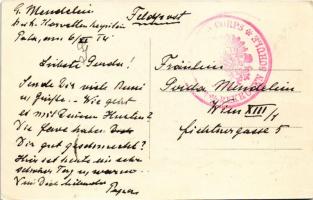 G. Mendelein
Feldpost
Pola, am 6/XI 14.
Liebste Gerda!
Sende Dir viele Bussi
u. Grüße. Wie geht
es mit Deinem Husten?
Die haben
Dir gut geschmeckt?
Hier ist heute ein sehr
schöner Tag u. warm.
Papa
CORPS
Fräulein
Gerda Mendelein
Wien XIII/1
Fichtnergasse 5